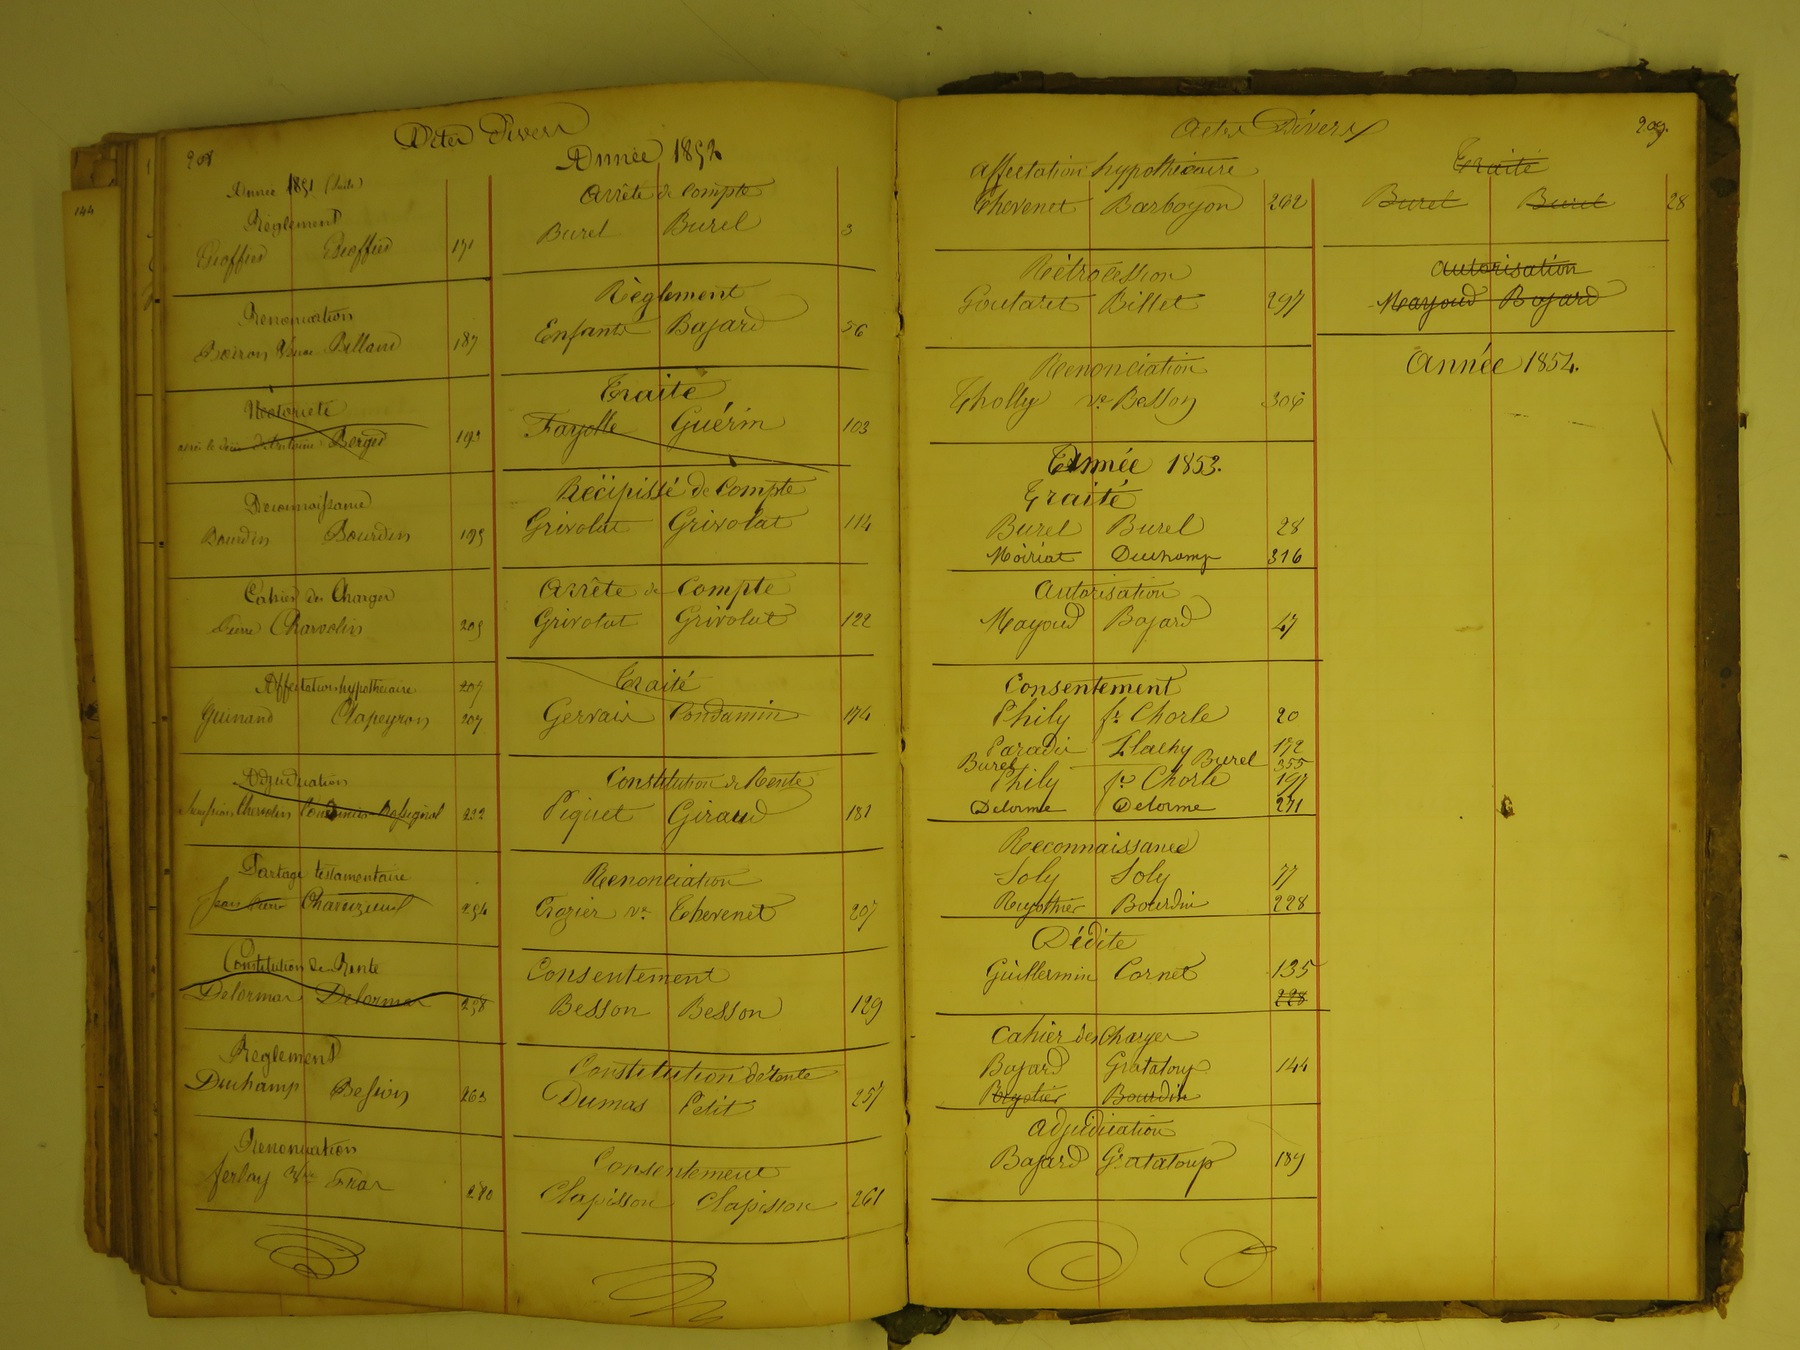 144
208
Actes Divers
Année 1851 (Suite)
Règlement
Geoffier Geoffier 171
Renonciation
Boiron Veuve Billand 187
Notoriété
après le décès d'Antoine Berger 193
Reconnaissance
Bourdin Bourdin 195
Cahier des Charges
Pierre Charvolin 205
Affectation hypothécaire 207
Guinand Clapeyron 207
Adjudication
232
Partage testamentaire
Jean Pierre 254
Constitution de Rente
Delorme Delorme 258
Règlement
Duchamp Besson 263
Renonciation
Ferlay 280
Année 1852
Arrêté de Compte
Burel Burel 3
Règlement
Enfants Bajard 56
Traité
Fayolle Guérin 103
Récipissé de Compte
Grivolat Grivolat 114
Arrêté de Compte
Grivolat Grivolat 122
Traité
Gervais Condamin 174
Constitution de Rente
Piquet Giraud 181
Renonciation
Crozier ve Thevenet 207
Consentement
Besson Besson 129
Constitution de rente
Dumas Petit 257
Consentement
Clapisson Clapisson 261
Actes Divers
209.
Affectation hypothécaire
Thevenet Barboyon 262
Rétrocession
Goutaret Billet 297
Renonciation
Tholly ve Besson 306
Année 1853.
Traité
Burel Burel 28
Moiriat Duchamp 316
Autorisation
Mayoud Bajard 47
Consentement
Phily fe Chorle 20
Paradis Flachy 172
Burel Burel 355
Phily fe Chorle 197
Delorme Delorme 271
Reconnaissance
Soly Soly 77
Reynthier Bourdin 228
Dédite
Guillermin Cornet 135
228
Cahier des Charges
Bajard Gratatoup 144
Bourdin
Adjudication
Bajard Gratatoup 189
Traité
Burel Burel 28
Autorisation
Mayoud Bajard
Année 1854.